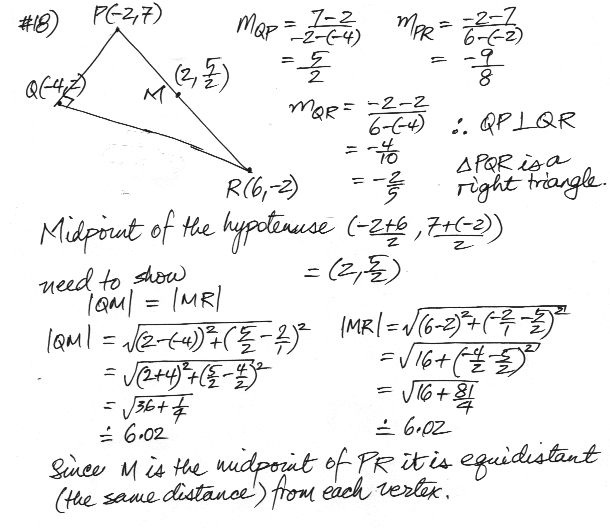 #18) P(-2,7)
Q(-4,2)
M (2, 5/2)
R(6,-2)
mQP = 7-2 / -2-(-4)
= 5/2
mPR = -2-7 / 6-(-2)
= -9/8
mQR = -2-2 / 6-(-4)
= -4/10
= -2/5
∴ QP⊥QR
△PQR is a
right triangle.
Midpoint of the hypotenuse (-2+6/2, 7+(-2)/2)
= (2, 5/2)
need to show
|QM| = |MR|
|QM| = √(2-(-4))²+(5/2-2/1)²
= √(2+4)²+(5/2-4/2)²
= √36+1/4
≐ 6.02
|MR| = √(6-2)²+(-2/1-5/2)²
= √16+(-4/2-5/2)²
= √16+81/4
≐ 6.02
Since M is the midpoint of PR it is equidistant
(the same distance) from each vertex.